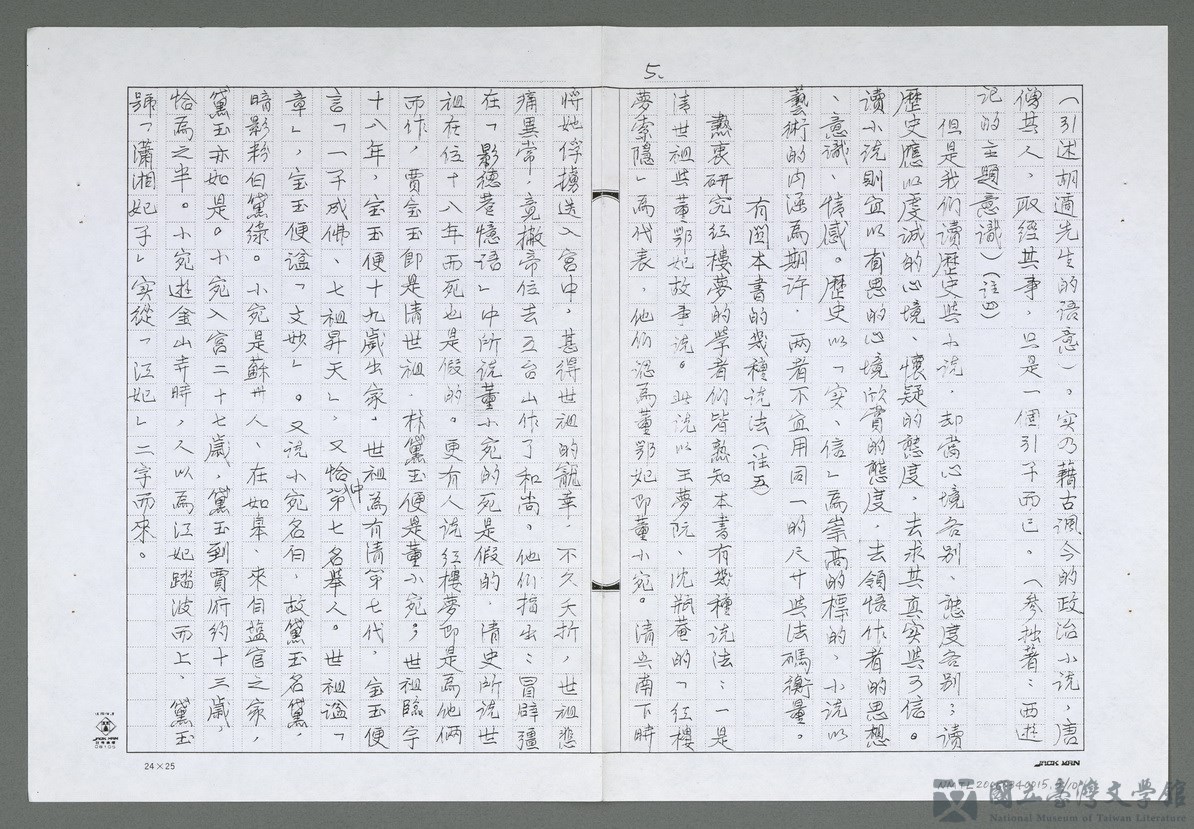 5.
（引述胡適先生的語意）。实乃藉古諷今的政治小说，唐
僧其人，取经其事，只是一個引子而已。（參拙著：西遊
记的主題意識）（注四）
但是我们讀歷史與小说，却當心境各别、態度各别：讀
歷史應以虔誠的心境、懷疑的態度，去求其真实與可信。
讀小说則宜以有思的心境欣賞的態度，去領悟作者的思想
、意識、情感。歷史以「实、信」為崇高的標的，小说以
藝術的内涵為期许，两者不宜用同一的尺寸與法碼衡量。
有関本書的幾種说法（注五）
熱衷研究红樓夢的學者们皆熟知本書有幾種说法：一是
清世祖與董鄂妃故事说。此说以王夢阮、沈瓶菴的「红樓
夢索隱」為代表，他们認為董鄂妃即董小宛。清兵南下時
将她俘擄送入宫中，甚得世祖的寵幸，不久夭折，世祖悲
痛異常，竟撇帝位去五台山作了和尚。他们指出：冒辟疆
在「影德菴憶語」中所说董小宛的死是假的，清史所说世
祖在位十八年而死也是假的。更有人说红樓夢即是為他俩
而作，賈宝玉即是清世祖，林黛玉便是董小宛；世祖臨宇
十八年，宝玉便十九歲出家，世祖為有清第七代，宝玉便
言「一子成佛、七祖昇天」，又恰中第七名舉人。世祖謚「
章」，宝玉便謚「文妙」。又说小宛名白，故黛玉名黛，
暗影粉白黛绿。小宛是蘇州人、在如皋、來自盐官之家，
黛玉亦如是。小宛入宫二十七歲，黛玉到賈府约十三歲，
恰為之半。小宛遊金山寺時，人以為江妃踏波而上、黛玉
號「瀟湘妃子」实從「江妃」二字而來。
24×25
JACK MAN
國立臺灣文學館
National Museum of Taiwan Literature